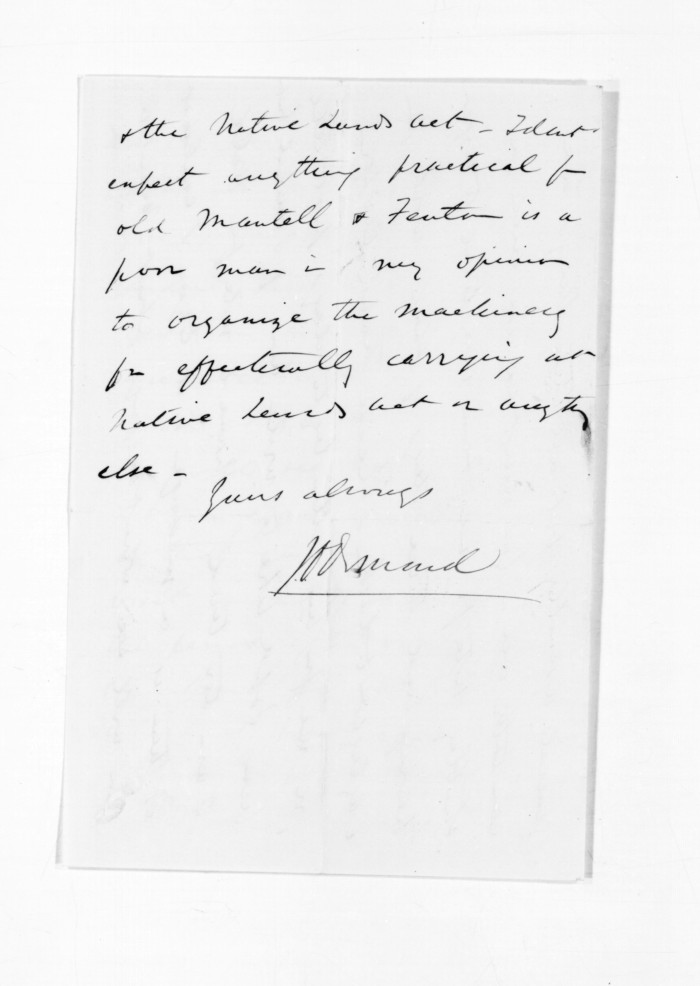 & the Native Lands Act - I don't
expect anything practical fm
old Mantell & Fenton is a
poor man in my opinion
to organize the machinery
for effectually carrying out
Native Lands Act or anything
else -
Yours always
J D Ormond